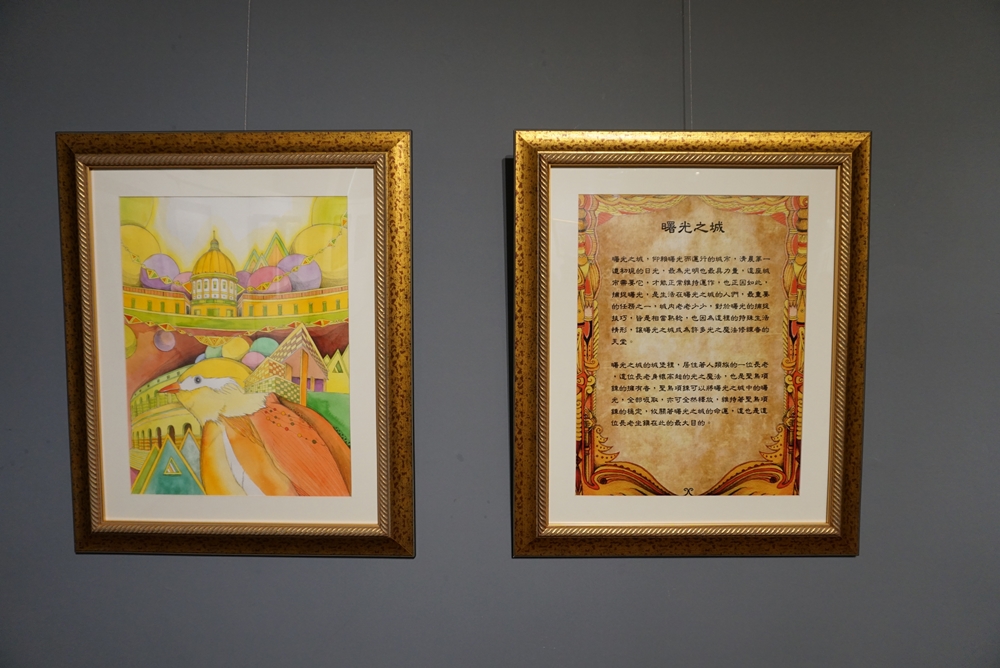 曙光之城
曙光之城，仰賴曙光來運行的城市，清晨第一
道初現的日光，最為光明也最具力量，這座城
市需要它，才能正常維持運作，也正因如此，
捕捉曙光，是生活在曙光之城的人們，最重要
的任務之一，城內老老少少，對於曙光的捕捉
技巧，皆是相當熟稔，也因為這裡的特殊生活
情形，讓曙光之城成為許多光之魔法修練者的
天堂。
曙光之城的城堡裡，居住著人類族的一位長老
，這位長老身懷不凡的光之魔法，也是聖鳥項
鍊的擁有者，聖鳥項鍊可以將曙光之城中的曙
光，全部吸取，亦可全然釋放，維持著聖鳥項
鍊的穩定，攸關著曙光之城的命運，這也是這
位長老坐鎮在此的最大目的。